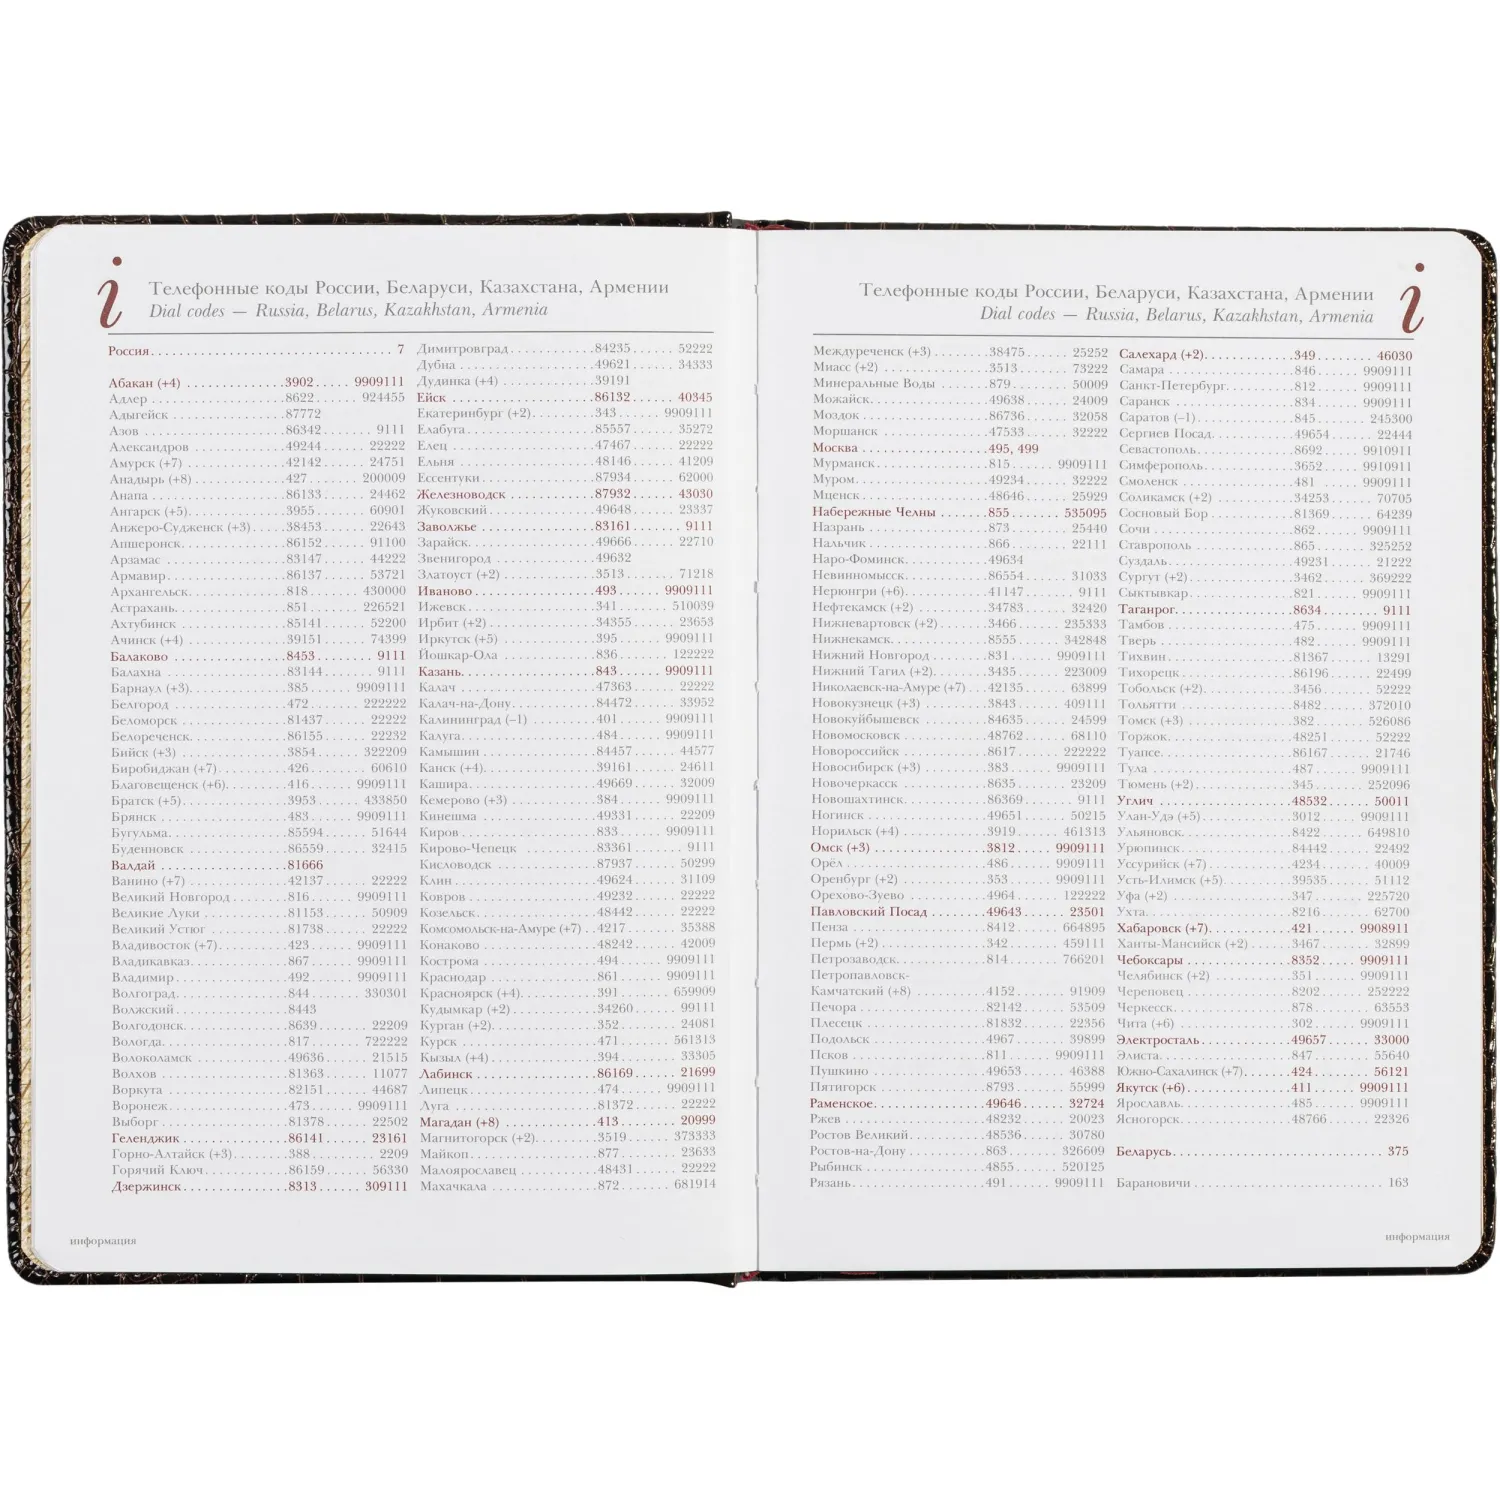 i
Телефонные коды России, Беларуси, Казахстана, Армении
Dial codes — Russia, Belarus, Kazakhstan, Armenia
Россия 7
Абакан (+4) 3902 9909111
Адлер 8622 924455
Адыгейск 87772
Азов 86342 9111
Александров 49244 22222
Амурск (+7) 42142 24751
Анадырь (+8) 427 200009
Анапа 86133 24462
Ангарск (+5) 3955 60901
Анжеро-Судженск (+3) 38453 22643
Апшеронск 86152 91100
Арзамас 83147 44222
Армавир 86137 53721
Архангельск 818 430000
Астрахань 851 226521
Ахтубинск 85141 52200
Ачинск (+4) 39151 74399
Балаково 8453 9111
Балахна 83144 9111
Барнаул (+3) 385 9909111
Белгород 472 222222
Беломорск 81437 22222
Белореченск 86155 22232
Бийск (+3) 3854 322209
Биробиджан (+7) 426 60610
Благовещенск (+6) 416 9909111
Братск (+5) 3953 433850
Брянск 483 9909111
Бугульма 85594 51644
Буденновск 86559 32415
Валдай 81666
Ванино (+7) 42137 22222
Великий Новгород 816 9909111
Великие Луки 81153 50909
Великий Устюг 81738 22222
Владивосток (+7) 423 9909111
Владикавказ 867 9909111
Владимир 492 9909111
Волгоград 844 330301
Волжский 8443
Волгодонск 8639 22209
Вологда 817 722222
Волоколамск 49636 21515
Волхов 81363 11077
Воркута 82151 44687
Воронеж 473 9909111
Выборг 81378 22502
Геленджик 86141 23161
Горно-Алтайск (+3) 388 2209
Горячий Ключ 86159 56330
Дзержинск 8313 309111
Димитровград 84235 52222
Дубна 49621 34333
Дудинка (+4) 39191
Ейск 86132 40345
Екатеринбург (+2) 343 9909111
Елабуга 85557 35272
Елец 47467 22222
Ельня 48146 41209
Ессентуки 87934 62000
Железноводск 87932 43030
Жуковский 49648 23337
Заволжье 83161 9111
Зарайск 49666 22710
Звенигород 49632
Златоуст (+2) 3513 71218
Иваново 493 9909111
Ижевск 341 510039
Ирбит (+2) 34355 23653
Иркутск (+5) 395 9909111
Йошкар-Ола 836 122222
Казань 843 9909111
Калач 47363 22222
Калач-на-Дону 84472 33952
Калининград (–1) 401 9909111
Калуга 484 9909111
Камышин 84457 44577
Канск (+4) 39161 24611
Кашира 49669 32009
Кемерово (+3) 384 9909111
Кинешма 49331 22209
Киров 833 9909111
Кирово-Чепецк 83361 9111
Кисловодск 87937 50299
Клин 49624 31109
Ковров 49232 22222
Козельск 48442 22222
Комсомольск-на-Амуре (+7) 4217 35388
Конаково 48242 42009
Кострома 494 9909111
Краснодар 861 9909111
Красноярск (+4) 391 659909
Кудымкар (+2) 34260 99111
Курган (+2) 352 24081
Курск 471 561313
Кызыл (+4) 394 33305
Лабинск 86169 21699
Липецк 474 9909111
Луга 81372 22222
Магадан (+8) 413 20999
Магнитогорск (+2) 3519 373333
Майкоп 877 23633
Малоярославец 48431 22222
Махачкала 872 681914
информация
Телефонные коды России, Беларуси, Казахстана, Армении
i
Dial codes — Russia, Belarus, Kazakhstan, Armenia
Междуреченск (+3) 38475 25252
Миасс (+2) 3513 73222
Минеральные Воды 879 50009
Можайск 49638 24009
Моздок 86736 32058
Моршанск 47533 32222
Москва 495, 499
Мурманск 815 9909111
Муром 49234 32222
Мценск 48646 25929
Набережные Челны 855 535095
Назрань 873 25440
Нальчик 866 22111
Наро-Фоминск 49634
Невинномысск 86554 31033
Нерюнгри (+6) 41147 9111
Нефтекамск (+2) 34783 32420
Нижневартовск (+2) 3466 235333
Нижнекамск 8555 342848
Нижний Новгород 831 9909111
Нижний Тагил (+2) 3435 223009
Николаевск-на-Амуре (+7) 42135 63899
Новокузнецк (+3) 3843 409111
Новокуйбышевск 84635 24599
Новомосковск 48762 68110
Новороссийск 8617 222222
Новосибирск (+3) 383 9909111
Новочеркасск 8635 23209
Новошахтинск 86369 9111
Ногинск 49651 50215
Норильск (+4) 3919 461313
Омск (+3) 3812 9909111
Орёл 486 9909111
Оренбург (+2) 353 9909111
Орехово-Зуево 4964 122222
Павловский Посад 49643 23501
Пенза 8412 664895
Пермь (+2) 342 459111
Петрозаводск 814 766201
Петропавловск-
Камчатский (+8) 4152 91909
Печора 82142 53509
Плесецк 81832 22356
Подольск 4967 39899
Псков 811 9909111
Пушкино 49653 46388
Пятигорск 8793 55999
Раменское 49646 32724
Ржев 48232 20023
Ростов Великий 48536 30780
Ростов-на-Дону 863 326609
Рыбинск 4855 520125
Рязань 491 9909111
Салехард (+2) 349 46030
Самара 846 9909111
Санкт-Петербург 812 9909111
Саранск 834 9909111
Саратов (–1) 845 245300
Сергиев Посад 49654 22444
Севастополь 8692 9910911
Симферополь 3652 9910911
Смоленск 481 9909111
Соликамск (+2) 34253 70705
Сосновый Бор 81369 64239
Сочи 862 9909111
Ставрополь 865 325252
Суздаль 49231 21222
Сургут (+2) 3462 369222
Сыктывкар 821 9909111
Таганрог 8634 9111
Тамбов 475 9909111
Тверь 482 9909111
Тихвин 81367 13291
Тихорецк 86196 22499
Тобольск (+2) 3456 52222
Тольятти 8482 372010
Томск (+3) 382 526086
Торжок 48251 52222
Туапсе 86167 21746
Тула 487 9909111
Тюмень (+2) 345 252096
Углич 48532 50011
Улан-Удэ (+5) 3012 9909111
Ульяновск 8422 649810
Урюпинск 84442 22492
Уссурийск (+7) 4234 40009
Усть-Илимск (+5) 39535 51112
Уфа (+2) 347 225720
Ухта 8216 62700
Хабаровск (+7) 421 9908911
Ханты-Мансийск (+2) 3467 32899
Чебоксары 8352 9909111
Челябинск (+2) 351 9909111
Череповец 8202 252222
Черкесск 878 63553
Чита (+6) 302 9909111
Электросталь 49657 33000
Элиста 847 55640
Южно-Сахалинск (+7) 424 56121
Якутск (+6) 411 9909111
Ярославль 485 9909111
Ясногорск 48766 22326
Беларусь 375
Барановичи 163
информация